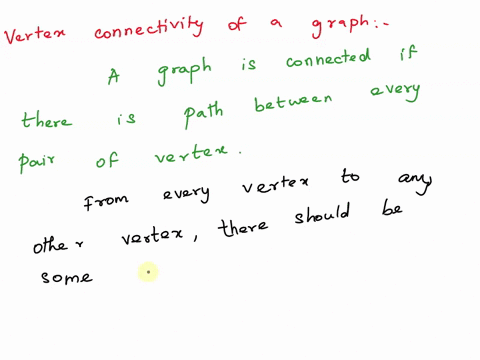 Vertex connectivity of a graph:-
A graph is connected if
there is path between every
pair of vertex.
From every vertex to any
other vertex, there should be
some